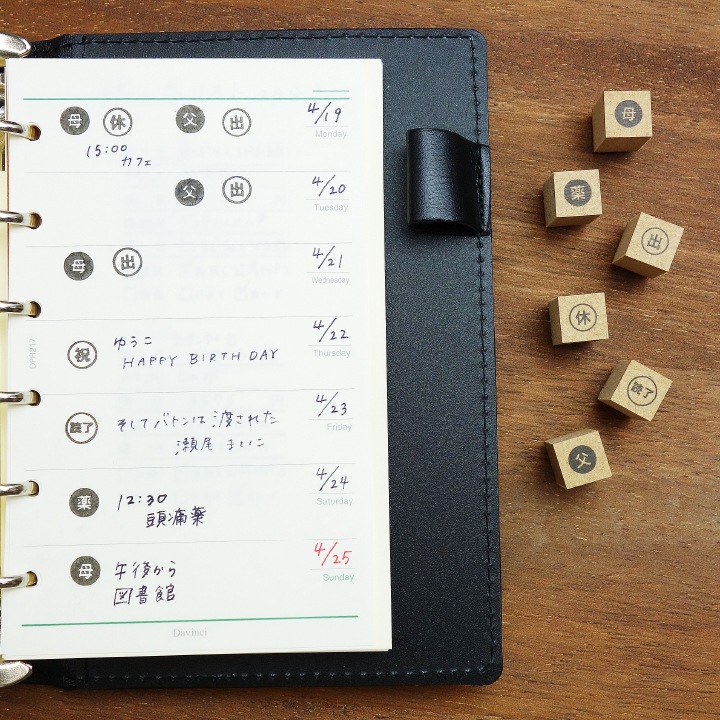 母 休 父 出 4/19
Monday
15:00
カフェ
父 出 4/20
Tuesday
母 出 4/21
Wednesday
祝 ゆうこ 4/22
HAPPY BIRTHDAY Thursday
読了 そしてバトンは渡された 4/23
瀬尾 まいこ Friday
薬 12:30 4/24
頭痛薬 Saturday
母 午後から 4/25
図書館 Sunday
Davinci
DPR217
母
薬
出
休
読了
父